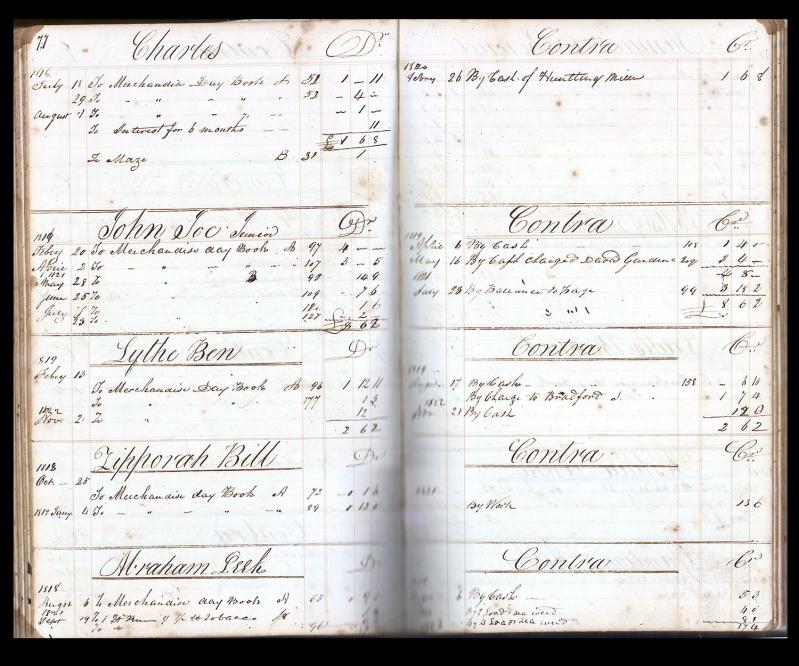 77 Charles Dr
1816
July 18 To Merchandise Day Book A 51 1 – 11
29 To " " " 52 – 4 –
August 1 To " " " – 1 –
To Interest for 6 months – – 11
£ 1 6 8
To Maze B 31 1
John Joe Junior Dr
1819
Febry 20 To Merchandise day Book A 97 4 – –
2 To " " " 107 3 – 5
1821
May 28 To " B 98 14 9
June 25 To " 109 – 7 6
July To 1 6
23 To 127 2
£ 8 6 2
Lythe Ben Dr
1819
Febry 13
To Merchandise Day Book A 96 1 12 11
To " " 177 1 3
1822
Novr 2 To " 12
2 6 2
Zipporah Bill Dr
1818
Oct – 25
To Merchandise day Book A 72 0 1 6
Jany 4 To – " – " – 89 0 12 0
Abraham Peek Dr
1818
August 6 To Merchandise day Book A 65
1821
Sept 19 To Tobacco
To 96
Contra Cr
1820
26 By Cash of Hunting Miller 1 6 8
Contra Cr
1819
6 By Cash 108 1 4 0
May 16 By Cash Charged David Gardiner 209 2 4 –
1821
July 23 By Ballance to Page 99 3 18 2
£ 8 6 2
Contra Cr
1819
17 By Cash – " 158 – 6 10
By Charge to Bradford J. 1 7 4
1822
Nov 21 By Cash 12 0
2 6 2
Contra Cr
By Work 13 6
Contra Cr
6 By Cash – 5 3
By 2 Loads sea weed 4 0
By 4 Loads sea weed
17 4